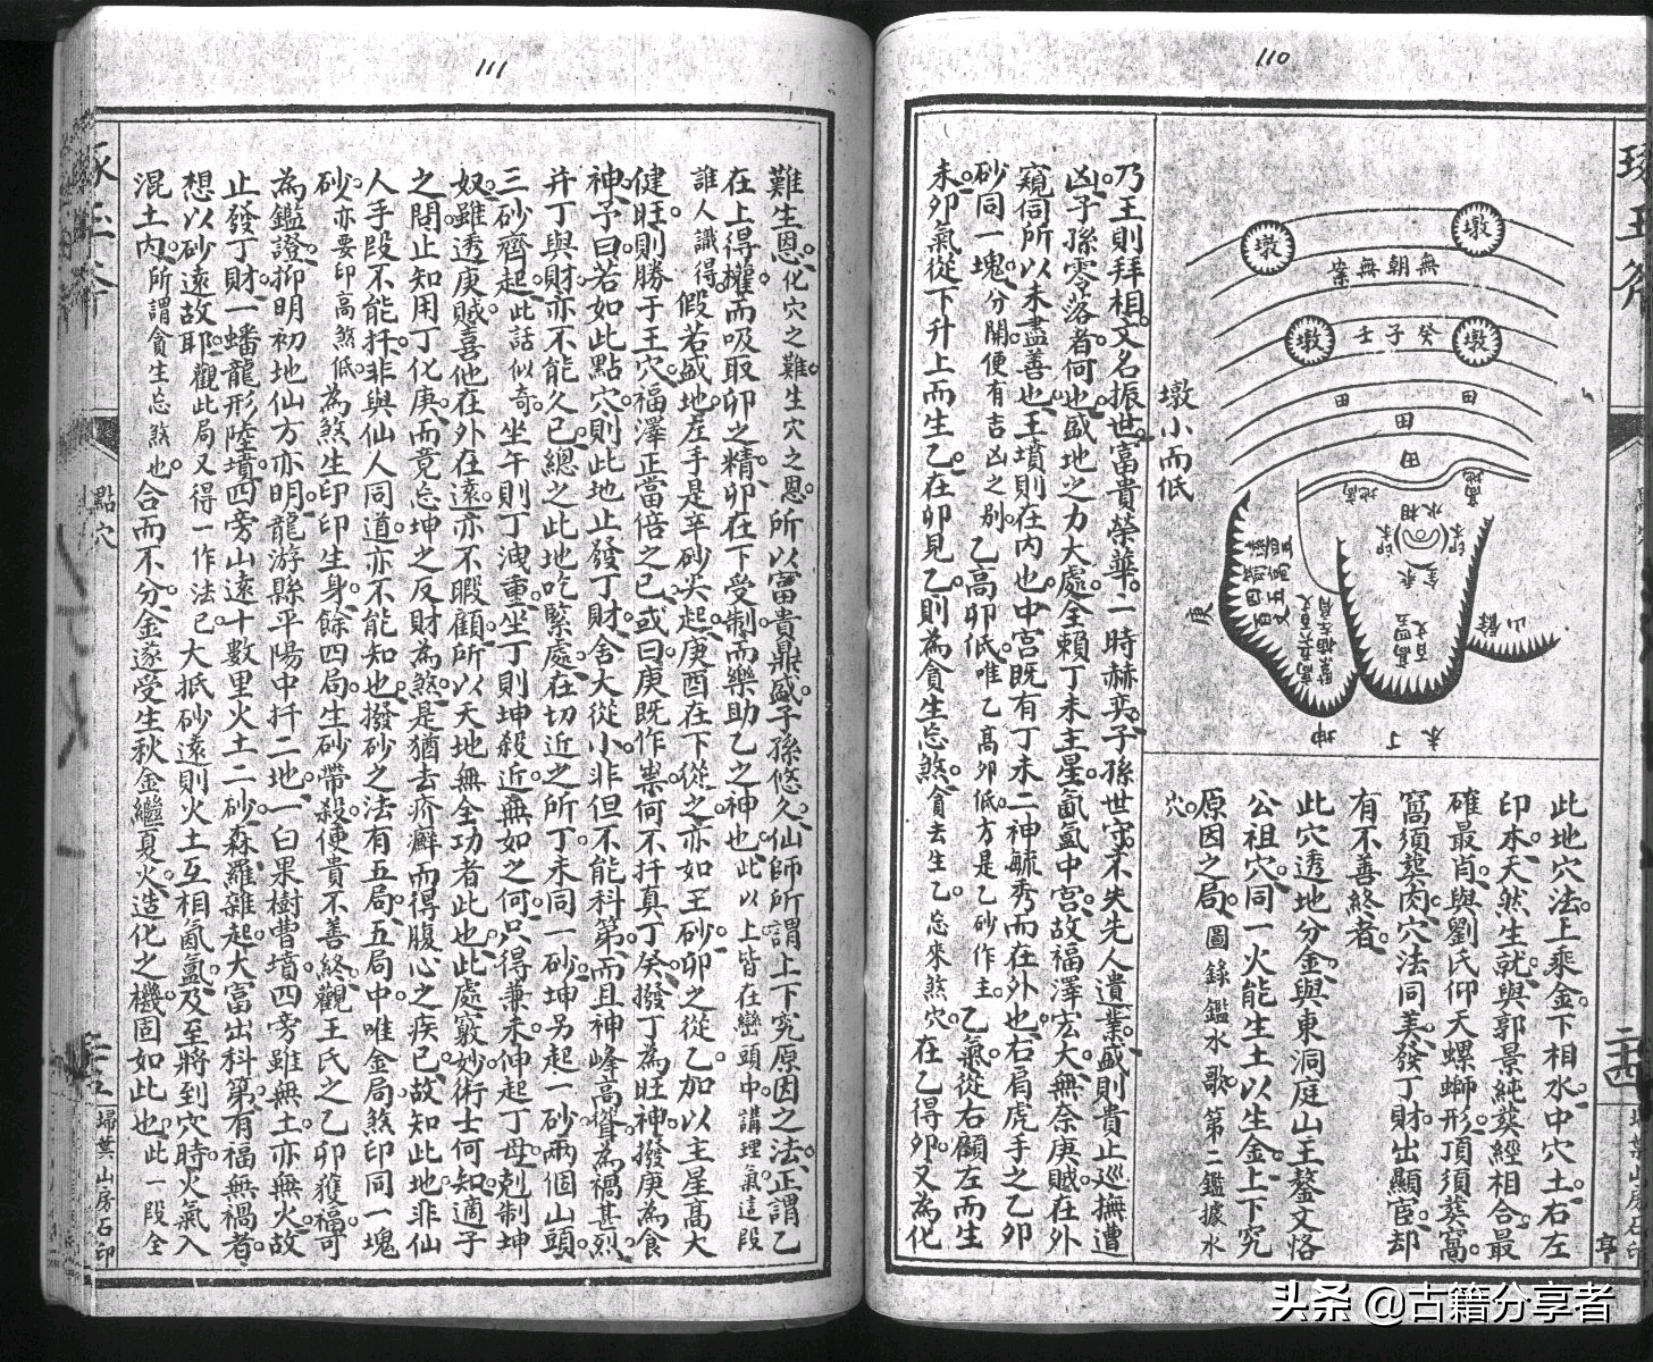 110
墩
墩
無朝無案
墩
癸子壬
墩
田
田
田
田
墩小而低
高地
高地
相水
印木
印木
乘金
萬四百丈五
餘山
庚
坤
丁
未
此地穴法。上乘金。下相水。中穴土。右左
印木。天然生就。與郭景純葬經相合。最
確最肖。與劉氏仰天螺螄形。頂須葬窩。
窩須葬肉。穴法同美。發丁財。出顯宦。却
有不善終者。
此穴透地分金。與東洞庭山王鏊文恪
公祖穴。同一火能生土。以生金。上下究
原因之局。圖錄鑑水歌。第二鑑據水
穴。
乃王則拜相。文名振世。富貴榮華。一時赫奕。子孫世守。不失先人遺業。盛則貴止巡撫。遭
凶。子孫零落者。何也。盛地之力大處。全賴丁未主星。氤氳中宮。故福澤宏大。無奈庚賊在外
窺伺。所以未盡善也。王墳則在內也。中宮既有丁未二神毓秀。而在外也。右肩虎手之乙卯
砂。同一塊。分開便有吉凶之別。乙高卯低。唯乙高卯低。方是乙砂作主。乙氣從右顧左而生
未。卯氣從下升上而生乙。在卯見乙。則為貪生忘煞。貪去生乙。忘來煞穴。在乙得卯。又為化
111
難生恩。化穴之難。生穴之恩。所以富貴鼎盛。子孫悠久。仙師所謂上下究原因之法。正謂乙
在上得權。而吸取卯之精。卯在下受制。而樂助乙之神也。此以上皆在巒頭中。講理氣。這段
誰人識得。假若盛地左手是辛砂尖起。庚酉在下從之。亦如王砂卯之從乙。加以主星高大
健旺。則勝于王穴。福澤正當倍之已。或曰。庚既作祟。何不扦真丁癸。撥丁為旺神。撥庚為食
神。予曰。若如此點穴。則此地止發丁財。舍大從小。非但不能科第。而且神峰高聳。為禍甚烈。
并丁與財。亦不能久已。總之此地吃緊處。在切近之所。丁未同一砂。坤另起一砂。兩個山頭。
三砂齊起。此話似奇。坐午則丁洩重。坐丁則坤殺近。無如之何。只得兼未伸起丁母。尅制坤
奴。雖透庚賊。喜他在外在遠。亦不暇顧。所以天地無全功者此也。此處竅妙。術士何知。適子
之閧。止知用丁化庚。而竟忘坤之反財為煞。是猶去疥癬而得腹心之疾已。故知此地非仙
人手段不能扦。非與仙人同道。亦不能知也。撥砂之法有五局。五局中唯金局煞印同一塊
砂。亦要印高煞低。為煞生印。印生身。餘四局。生砂帶殺。便貴不善終。觀王氏之乙卯獲福。可
為鑑證。抑明初地仙方亦明。龍游縣平陽中扦二地。一白果樹曹墳。四旁雖無土。亦無火。故
止發丁財。一蟠龍形陸墳。四旁山遠十數里。火土二砂。森羅雜起。大富出科第。有福無禍者。
想以砂遠故耶。觀此局又得一作法已。大抵砂遠則火土互相氤氳。及至將到穴時。火氣入
混土內。所謂貪生忘煞也。合而不分。金遂受生。秋金繼夏火。造化之機。固如此也。此一段全
點穴
掃葉山房石印
頭条 @古籍分享者